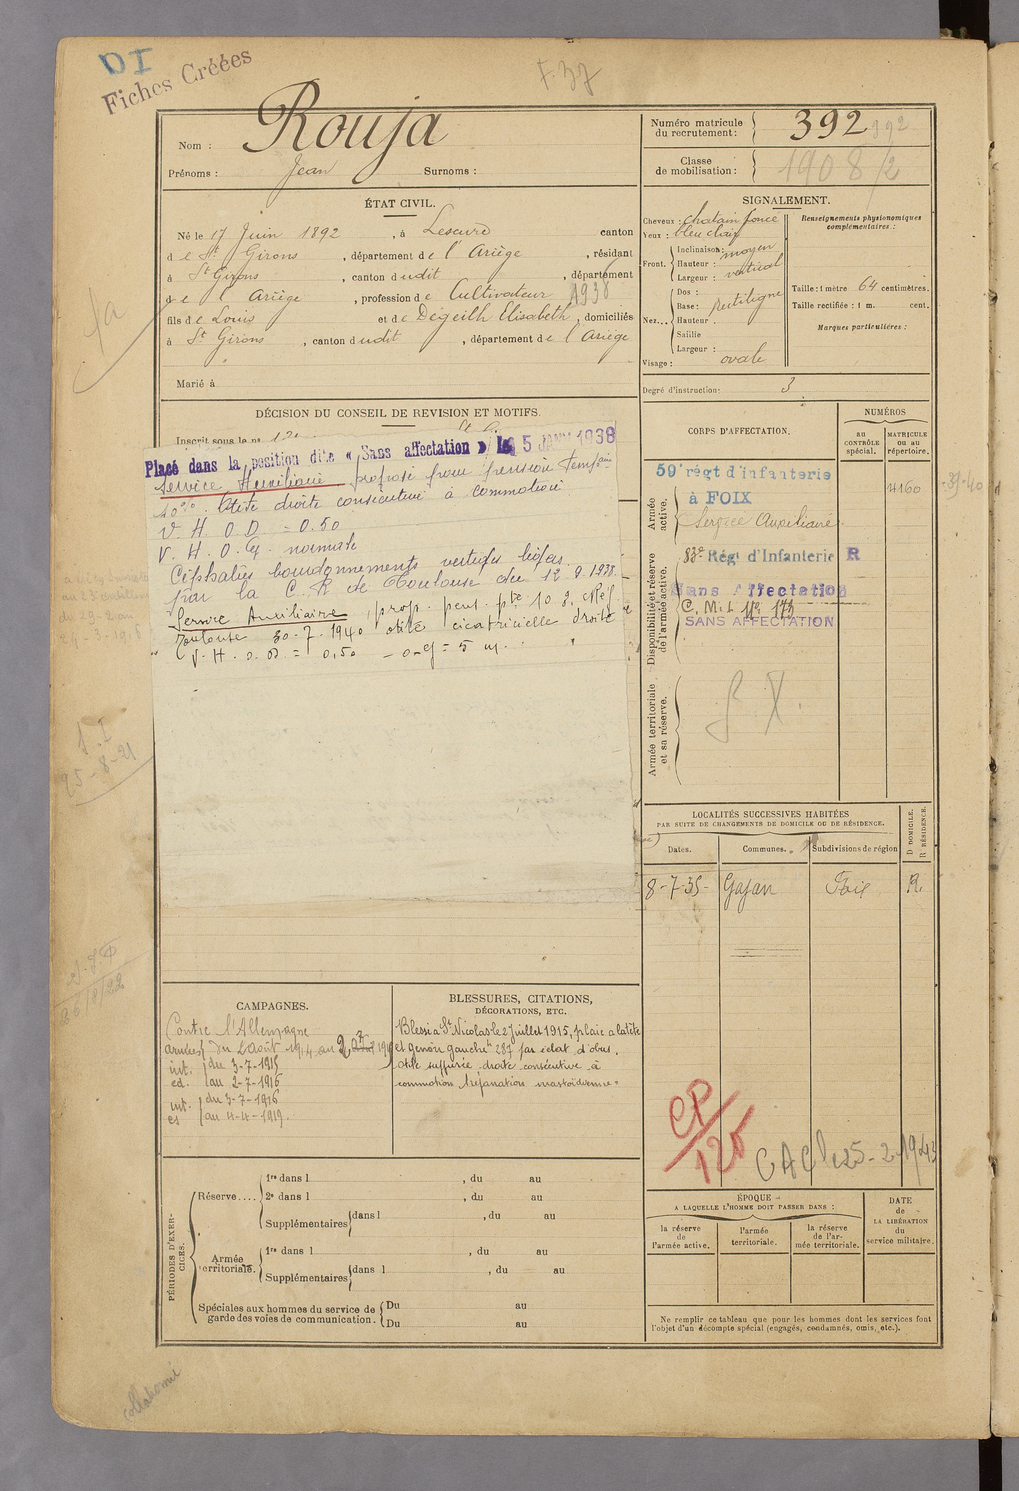 DI
Fiches Créées
F. 37
Nom : Rouja
Prénoms : Jean Surnoms :
Numéro matricule du recrutement : 392
392
Classe de mobilisation : 1908/2
ÉTAT CIVIL.
Né le 17 Juin 1892, à Lescure canton
de St Girons, département de l'Ariège, résidant
à St Girons, canton dudit, département
de l'Ariège, profession de Cultivateur 1938
fils de Louis et de Degeilh Elisabeth, domiciliés
à St Girons, canton dudit, département de l'Ariège
Marié à
SIGNALEMENT.
Cheveux : chatain foncé
Yeux : bleu clair
Front. Inclinaison : moyen
Hauteur : vertical
Largeur :
Nez... Dos : Rectiligne
Base :
Hauteur :
Saillie
Largeur :
Visage : ovale
Renseignements physionomiques complémentaires :
Taille : 1 mètre 64 centimètres.
Taille rectifiée : 1 m. cent.
Marques particulières :
Degré d'instruction : 3
DÉCISION DU CONSEIL DE REVISION ET MOTIFS.
Inscrit sous le no
Placé dans la position dite « Sans affectation » le 5 JANV 1938
Service Auxiliaire proposé pour pension temp
10% Otite droite consécutive à commotion
V. H. O. D = 0.50
V. H. O. G. normale
Céphalées bourdonnements vertiges légers.
par la C. R de Toulouse du 12.9.1938.
Service Auxiliaire prop. pent. pte 10%
Toulouse 30-7-1940 otite cicatricielle droite
V. H. O. D = 0,50 - O.G = 5 m.
CORPS D'AFFECTATION.
NUMÉROS
au CONTRÔLE spécial.
MATRICULE ou au répertoire.
Armée active.
59e régt d'infanterie
à FOIX
Service Auxiliaire
4160
Disponibilité et réserve de l'armée active.
83e Régt d'Infanterie R
Sans Affectation
C. M. I. No 173
SANS AFFECTATION
Armée territoriale et sa réserve.
LOCALITÉS SUCCESSIVES HABITÉES
PAR SUITE DE CHANGEMENTS DE DOMICILE OU DE RÉSIDENCE.
D DOMICILE.
R RÉSIDENCE.
Dates. Communes. Subdivisions de région
8-7-35- Gajan Foix R.
CAMPAGNES.
Contre l'Allemagne
armées du 2 août 1914 au 2
int. du 3-7-1915
au 2-7-1916
int. du 3-7-1916
au 4-4-1919.
BLESSURES, CITATIONS,
DÉCORATIONS, ETC.
Blessé à St Nicolas le 2 juillet 1915, plaie a la tête
et genou gauche par éclat d'obus.
otite suppurée droite consécutive à
commotion trépanation mastoïdienne.
CP/125
CACl 25-2-1943
PÉRIODES D'EXERCICES.
Réserve.... 1re dans l , du au
2e dans l , du au
Supplémentaires dans l , du au
Armée territoriale. 1re dans l , du au
Supplémentaires dans l , du au
Spéciales aux hommes du service de garde des voies de communication. Du au
Du au
ÉPOQUE
A LAQUELLE L'HOMME DOIT PASSER DANS :
la réserve de l'armée active.
l'armée territoriale.
la réserve de l'armée territoriale.
DATE de LA LIBÉRATION du service militaire.
Ne remplir ce tableau que pour les hommes dont les services font
l'objet d'un décompte spécial (engagés, condamnés, omis, etc.).